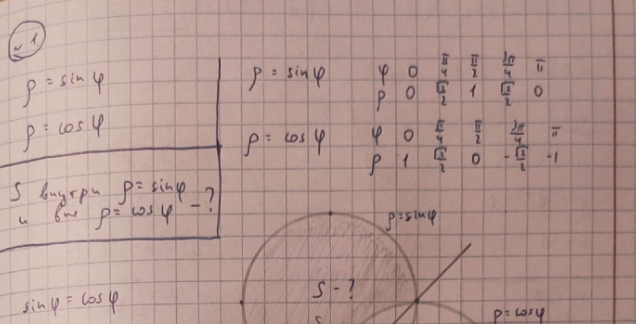 №1
ρ = sinφ
ρ = cosφ
S внутри ρ = sinφ
и вне ρ = cosφ - ?
sinφ = cosφ
ρ = sinφ
φ 0 π/4 π/2 3π/4 π
ρ 0 √2/2 1 √2/2 0
ρ = cosφ
φ 0 π/4 π/2 3π/4 π
ρ 1 √2/2 0 -√2/2 -1
ρ = sinφ
S - ?
ρ = cosφ